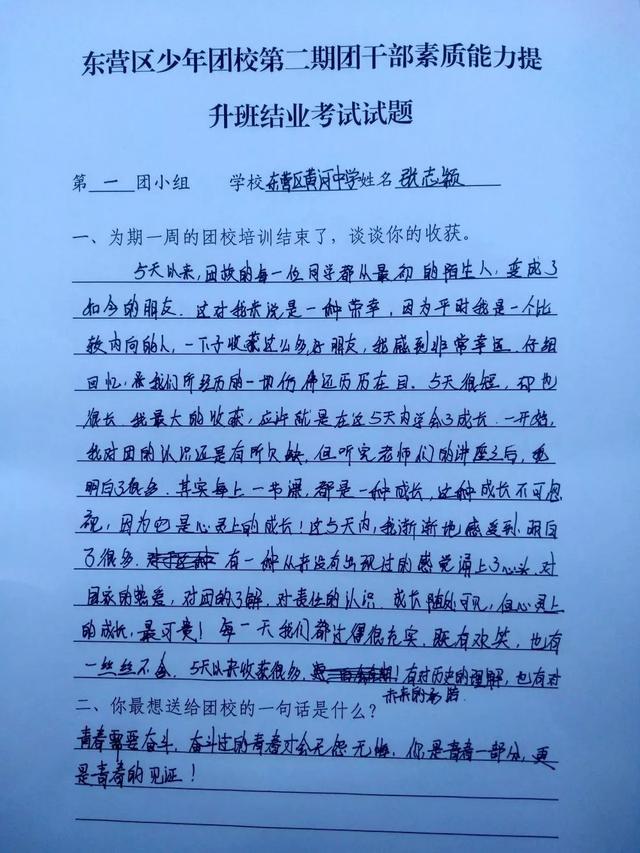 东营区少年团校第二期团干部素质能力提
升班结业考试试题
第 一 团小组 学校东营区黄河中学姓名 张志颖
一、为期一周的团校培训结束了，谈谈你的收获。
5天以来，团校的每一位同学都从最初的陌生人，变成了
如今的朋友。这对我来说是一种荣幸，因为平时我是一个比
较内向的人，一下子收获这么多好朋友，我感到非常幸运。仔细
回忆，来我们所经历的一切仿佛还历历在目。5天很短，却也
很长。我最大的收获，应许就是在这5天内学会了成长。一开始，
我对团的认识还是有所欠缺，但听完老师们的讲座之后，也
明白了很多。其实每上一节课，都是一种成长，这种成长不可忽
视，因为它是心灵上的成长！这5天内，我渐渐地感受到、明白
了很多。有一种从未没有出现过的感觉涌上了心头。对
国家的热爱，对团的了解，对责任的认识。成长随处可见，但心灵上
的成长，最可贵！每一天我们都过得很充实，既有欢笑，也有
一丝丝不舍。5天以来收获很多，有对历史的理解，也有对
未来的
二、你最想送给团校的一句话是什么？
青春需要奋斗，奋斗过的青春才会无怨无悔。你是青春一部分，更
是青春的见证！